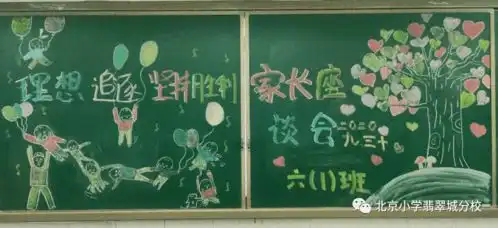 理想 追逐 坚持胜利
家长座
谈会
二〇二〇
九、三十
六(1)班
北京小学翡翠城分校